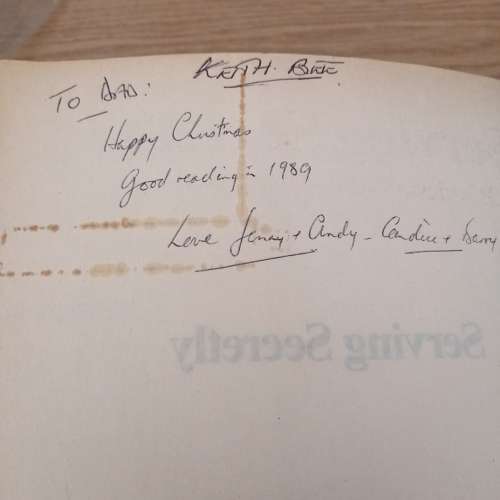 KEITH. BEE
TO DAD:
Happy Christmas
Good reading in 1989
Love Jenny + Andy - Candice + Barry
Serving Secretly